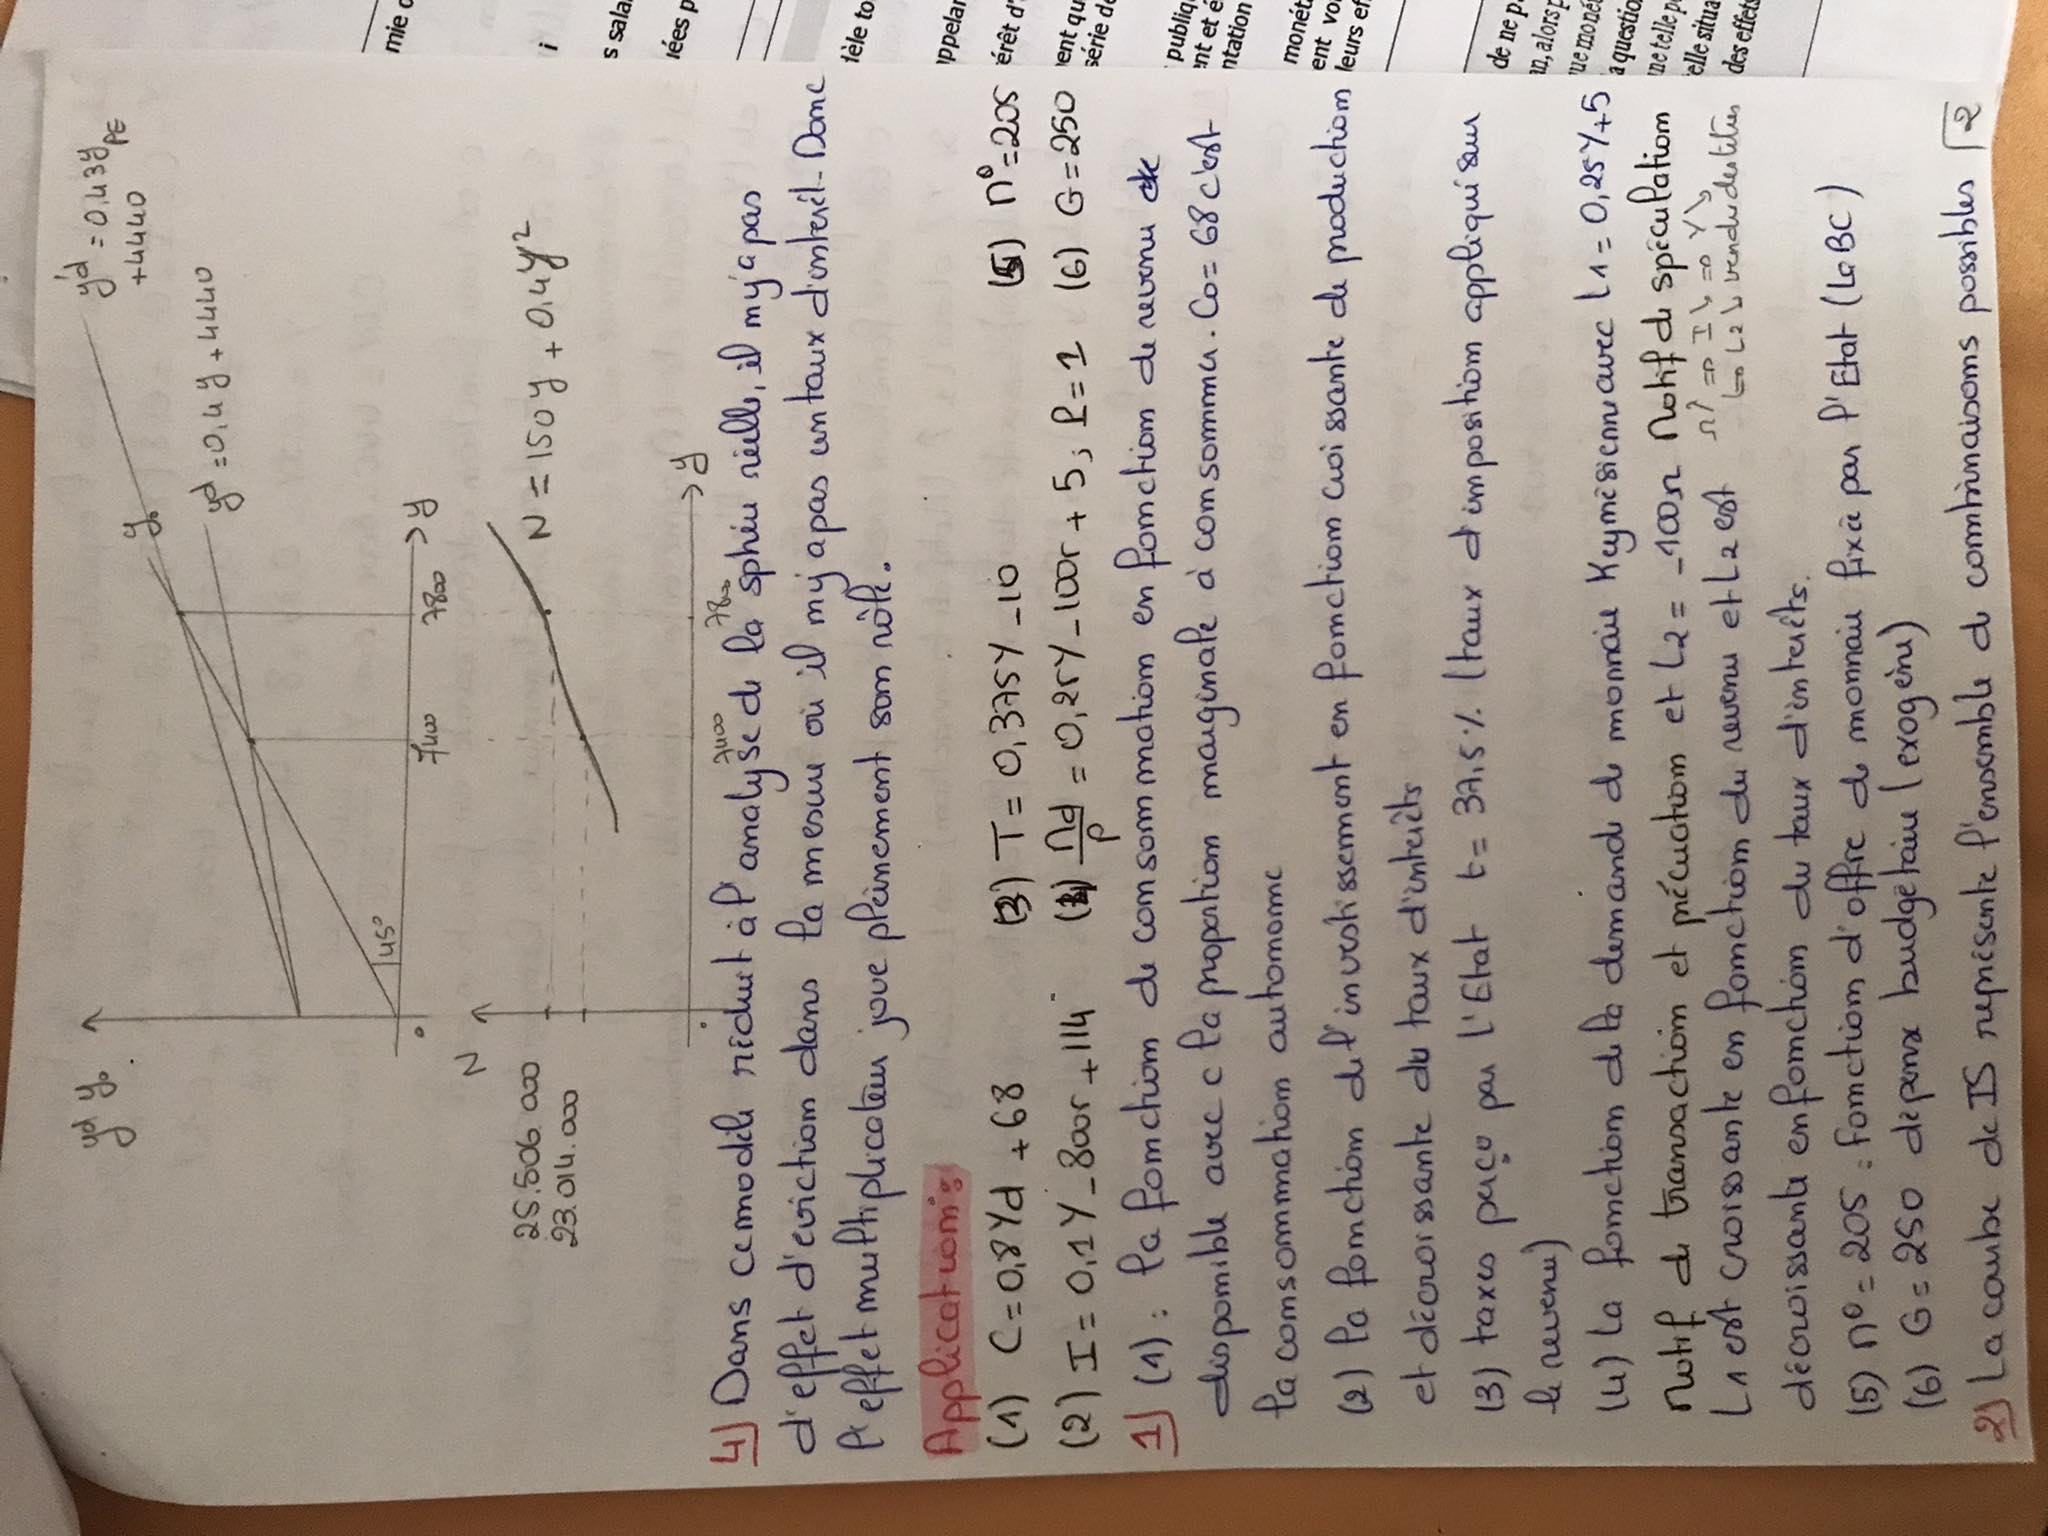 yd y₀
y'd = 0,43y PE
+4440
y₀
yd = 0,4y + 4440
45°
0
7400
7800
y
N
25.506.000
23.014.000
N = 150y + 0,4y²
y
7400
7800
4) Dans ce modèle réduit à l'analyse de la sphère réelle, il n'y a pas
d'effet d'éviction dans la mesure où il n'y a pas un taux d'intérêt. Donc
l'effet multiplicateur joue pleinement son rôle.
Application:
(1) C = 0,8Yd + 68
(3) T = 0,375Y - 10
(5) M° = 205
(2) I = 0,1Y - 800r + 114
(4) Md/P = 0,25Y - 100r + 5; P = 1
(6) G = 250
1) (1): la fonction de consommation en fonction de revenu de
disponible avec c la proportion marginale à consommer. Co = 68 c'est
la consommation autonome
(2) la fonction de l'investissement en fonction croissante de production
et décroissante du taux d'interêts
(3) taxes perço par l'Etat t = 37,5% (taux d'imposition appliqué sur
le revenu)
(4) La fonction de la demande de monnaie Keynésienne avec L1 = 0,25Y+5
Motif de transaction et précuation et L2 = -100r Motif de spéculation
r↑ => I↘ => Y↘
L1 est croissante en fonction du revenu et L2 est
↳ L2↘ vendu des titres
décroissante en fonction du taux d'interêts.
(5) M° = 205 : fonction d'offre de monnaie fixée par l'Etat (La BC)
(6) G = 250 dépense budgétaire (exogène)
2) La courbe de IS représente l'ensemble de combinaisons possibles
2
mie
i
s sala
ées p
èle to
ppelan
érêt d'
ent qu
série de
publiq
ent et é
ntation
monéta
ent vo
leurs ef
de ne p
an, alors p
que monét
a question
une telle p
elle situa
des effets